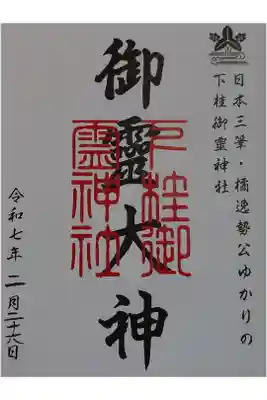 日本三筆・橘逸勢公ゆかりの
下桂御霊神社
御靈大神
下桂御
霊神社
令和七年 二月二十六日